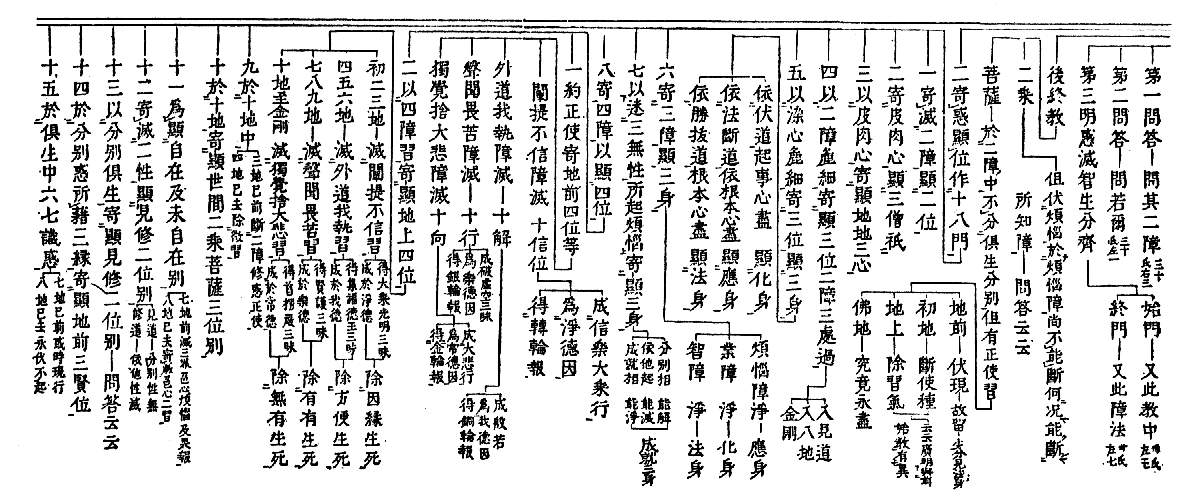 第一問答―問其二障
始門―又此教中
第二問答―問若爾
第三明惑滅智生分齊
終門―又此障法
後終教
但伏煩惱於煩惱障尚不能斷何況能斷
二乘
所知障―問答云云
菩薩―於二障中不分俱生分別但有正使習
二寄惑顯位作十八門
一寄滅二障顯二位
地前―伏現
初地―斷使種
地上―除習氣
佛地―究竟永盡
二寄皮肉心顯三僧祇
三以皮肉心寄顯地地三心
四以二障麁細寄顯三位二障三處過
入見道
入八地
金剛
五以除心麁細寄三位顯三身
依伏道起事心盡 顯化身
依法斷道依根本心盡 顯應身
依勝拔道根本心盡 顯法身
六寄三障顯三身
煩惱障淨―應身
業障 淨―化身
智障 淨―法身
七以迷三無性所起煩惱寄顯三身
分別相 能解
依他起 能滅
成就相 能淨
成就三身
八寄四障以顯四位
一約正使寄地前四位等
闡提不信障滅 十信位
成信樂大乘行
為淨德因
得轉輪報
外道我執障滅―十解
成般若
為我德因
得銅輪報
聲聞畏苦障滅―十行
成破虛空三昧
為樂德因
得銀輪報
獨覺捨大悲障滅十向
成大悲行
為常德因
得金輪報
二以四障習寄顯地上四位
初二三地―滅闡提不信習
得大乘光明三昧
成於淨德
除因緣生死
四五六地―滅外道我執習
得集福德王三昧
成於我德
除方便生死
七八九地―滅聲聞畏苦習
得賢護三昧
成於樂德
除有有生死
十地至金剛 滅獨覺捨大悲習
得首楞嚴三昧
成於常德
除無有生死
九於十地中
三地已前斷二障修惑正使
四地已去除微習
十於十地寄顯世間二乘菩薩三位別
十一為顯自在及未自在別
十二寄滅二性顯見修二位別
見道―分別性無
修道―依他性滅
十三以分別俱生寄顯見修二位別―問答云云
十四於分別惑所藉三緣寄顯地前三賢位
十五於俱生中六七識惑
七地已前或時現行
八地已去永伏不起